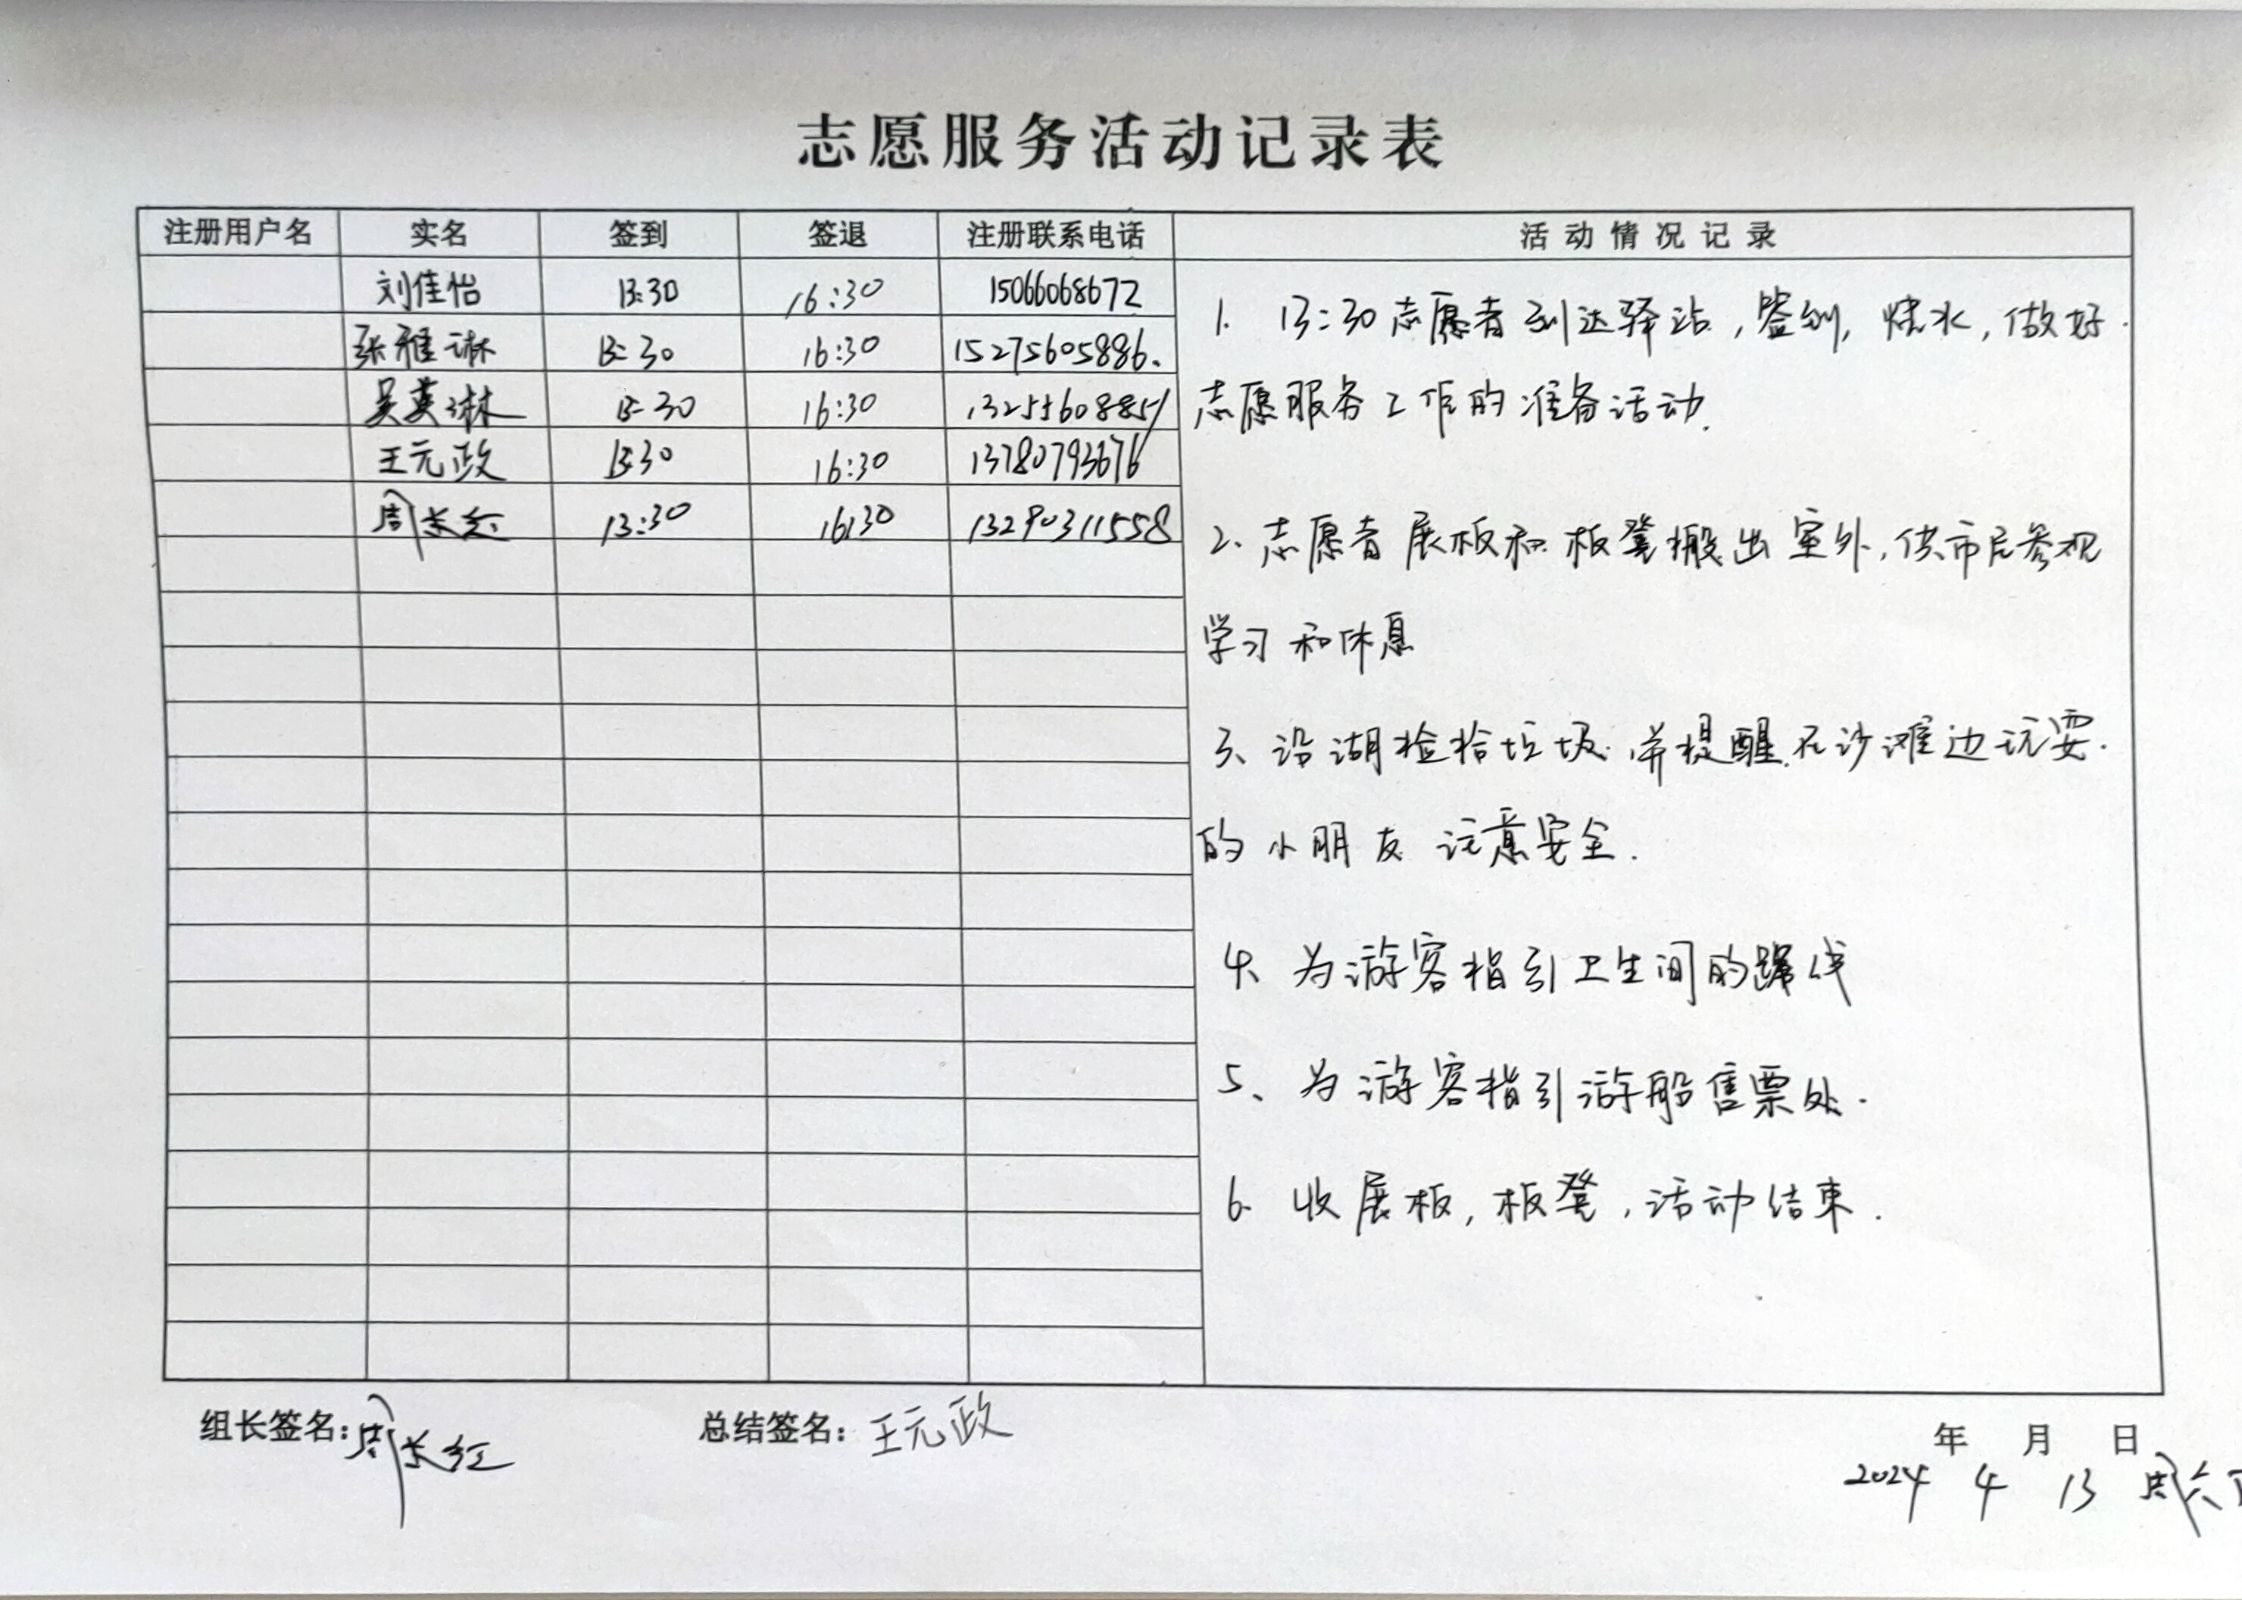 志愿服务活动记录表
注册用户名 实名 签到 签退 注册联系电话 活动情况记录
刘佳怡 13:30 16:30 15066068672
张雅琳 13:30 16:30 15275605886.
吴英琳 13:30 16:30 13255608851
王元政 13:30 16:30 13780793676
周长红 13:30 16:30 13290311558
1. 13:30志愿者到达驿站,签到,烧水,做好
志愿服务工作的准备活动.
2、志愿者展板和板凳搬出室外,供市民参观
学习和休息
3、沿湖检拾垃圾.并提醒在沙滩边玩耍.
的小朋友注意安全.
4、为游客指引卫生间的路线
5、为游客指引游船售票处.
6. 收展板,板凳,活动结束.
组长签名:周长红 总结签名:王元政
年 月 日
2024 4 13 周六